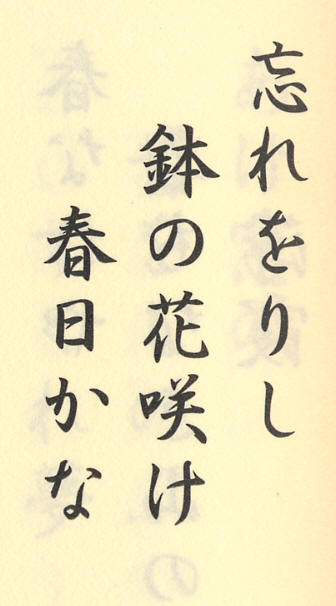 忘れをりし
鉢の花咲け
春日かな